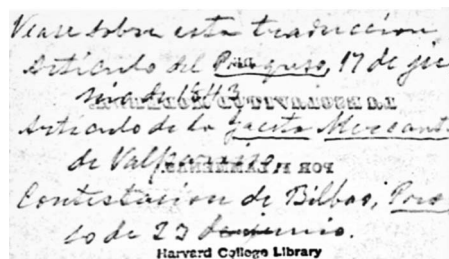 Vease sobre esta traduccion
Articulo del Progreso, 17 de ju
nio de 1843
Articulo de la Gaceta Mercant
de Valparaiso
Contestacion de Bilbao, Pro
so de 23 de junio.
Harvard College Library